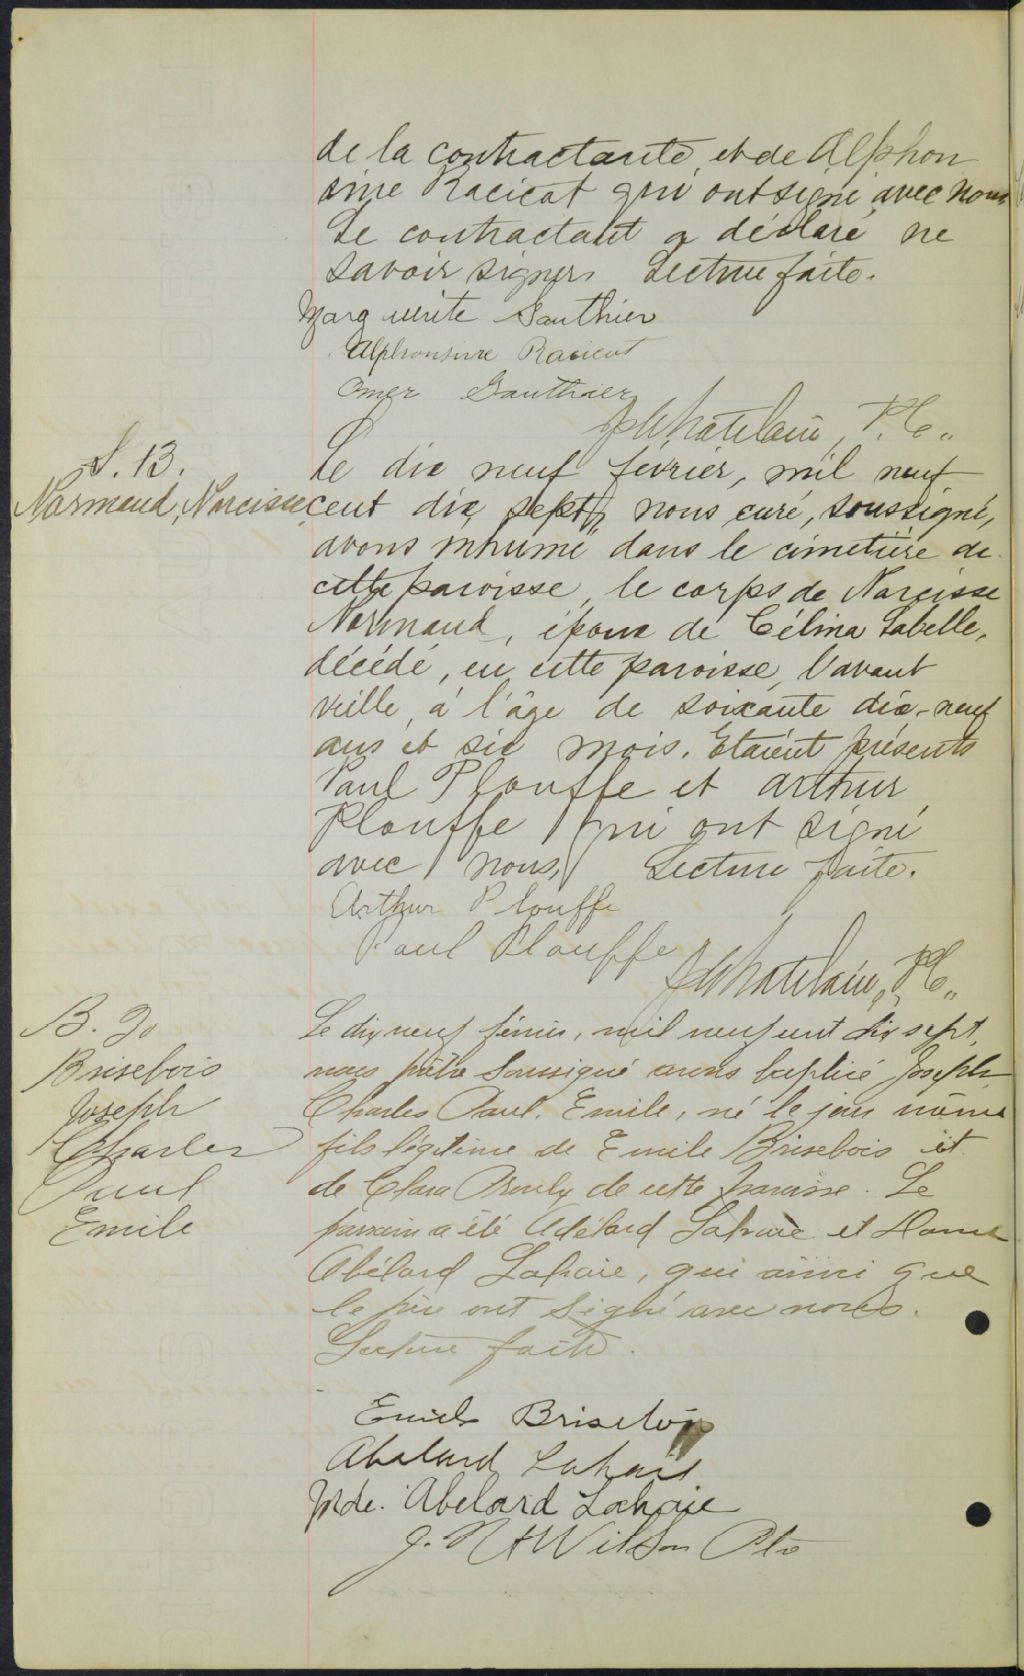 de la contractante et de Alphon
sine Racicot qui ont signé avec nous
Le contractant a déclaré ne
savoir signer. Lecture faite.
Marguerite Gauthier
Alphonsine Racicot
Omer Gauthier
Chatelain, P.C.
S. 13.
Normand, Narcisse
Le dix neuf février, mil neuf
cent dix sept, nous curé, soussigné,
avons inhumé dans le cimetière de
cette paroisse, le corps de Narcisse
Normand, époux de Célina Labelle,
décédé, en cette paroisse, l'avant
veille, à l'âge de soixante dix-neuf
ans et six mois. Etaient présents
Paul Plouffe et Arthur
Plouffe qui ont signé
avec nous, Lecture faite.
Arthur Plouffe
Paul Plouffe
Chatelain, P.C.
B. 20
Brisebois
Joseph
Charles
Paul
Emile
Le dix neuf février, mil neuf cent dix sept,
nous prêtre soussigné avons baptisé Joseph
Charles Paul, Emile, né le jour même
fils légitime de Emile Brisebois et
de Clara Proulx de cette paroisse. Le
parrain a été Adélard Lahaie et Dame
Abélard Lahaie, qui ainsi que
le père ont signé avec nous.
Lecture faite.
Emile Brisebois
Abelard Lahaie
Mde. Abelard Lahaie
J. N. H Wilson Ptr